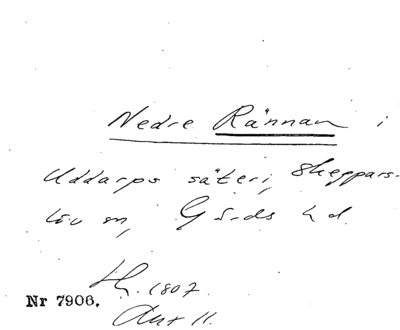 Nedre Rännan i
Uddarps säteri, Skeppars-
löv sn, Gärds hd.
Hn. 1807.
Nr 7906.
Akt 11.